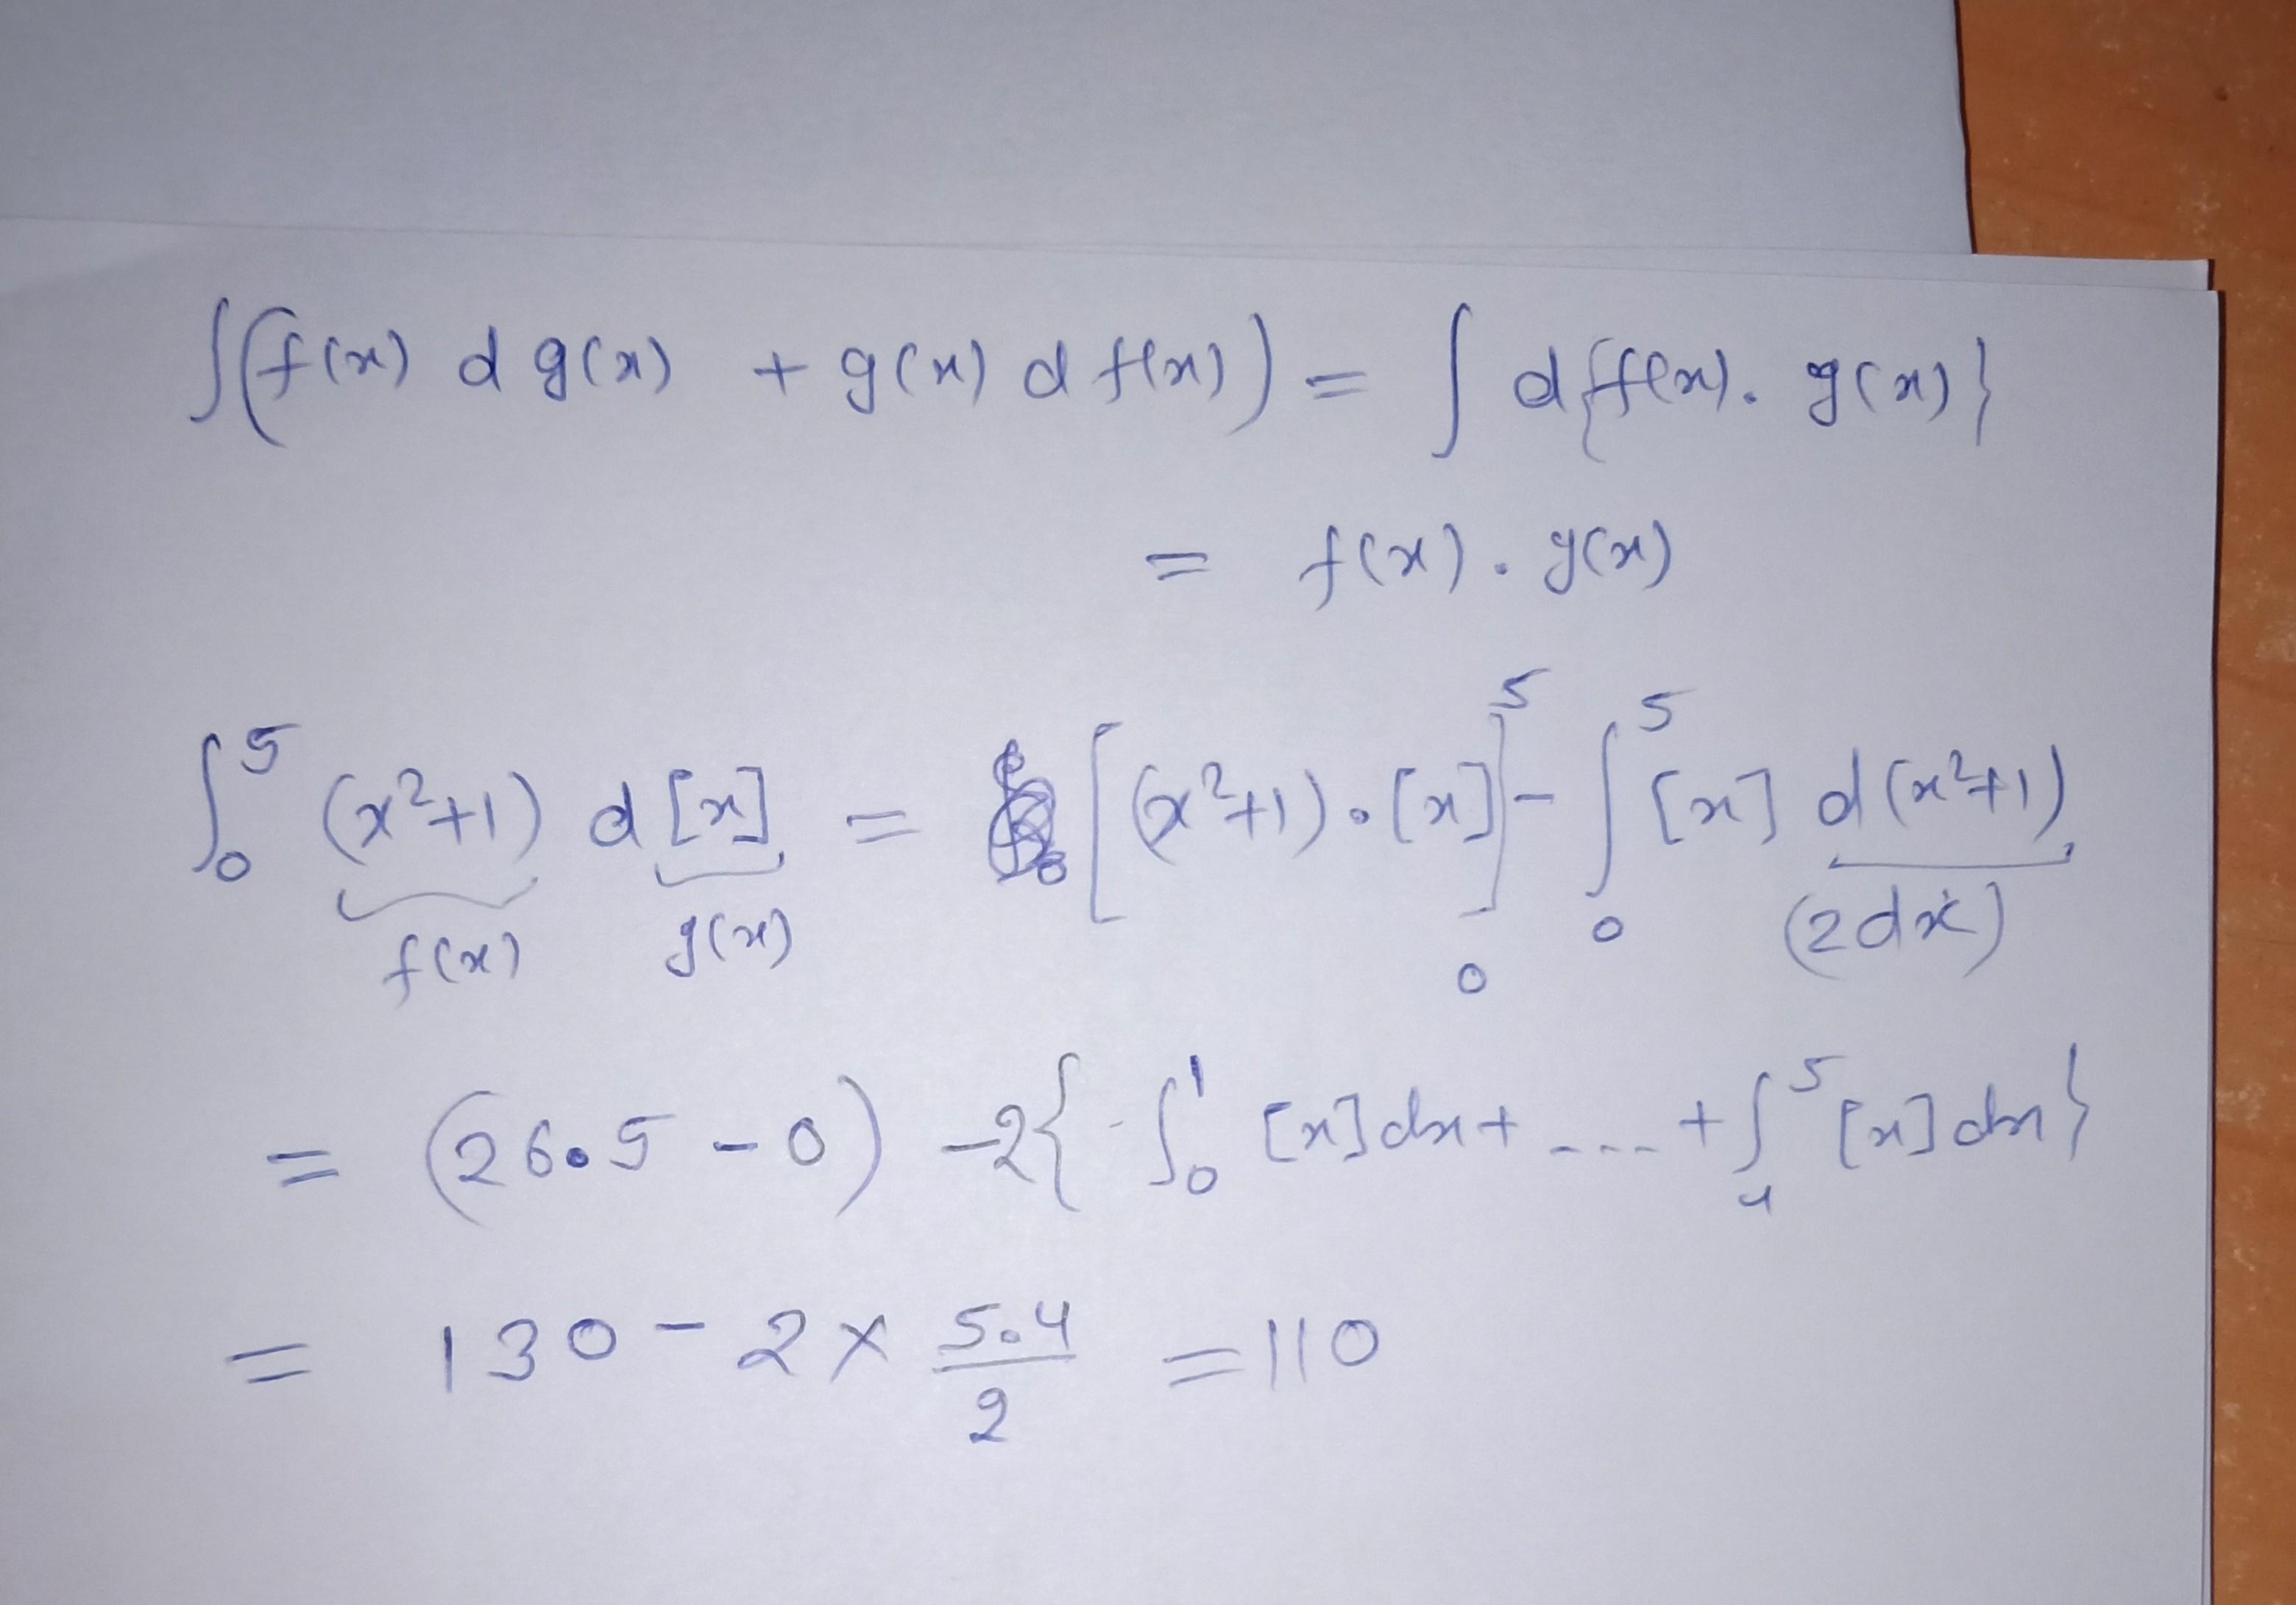 ∫(f(x) d g(x) + g(x) d f(x)) = ∫ d{f(x). g(x)}
= f(x). g(x)
∫₀⁵ (x²+1) d [x] = [(x²+1).[x]]₀⁵ - ∫₀⁵ [x] d(x²+1)
f(x) g(x) (2dx)
= (26.5 - 0) -2{ ∫₀¹ [x]dx + ---- + ∫₄⁵ [x] dx}
= 130 - 2 × 5.4/2 = 110